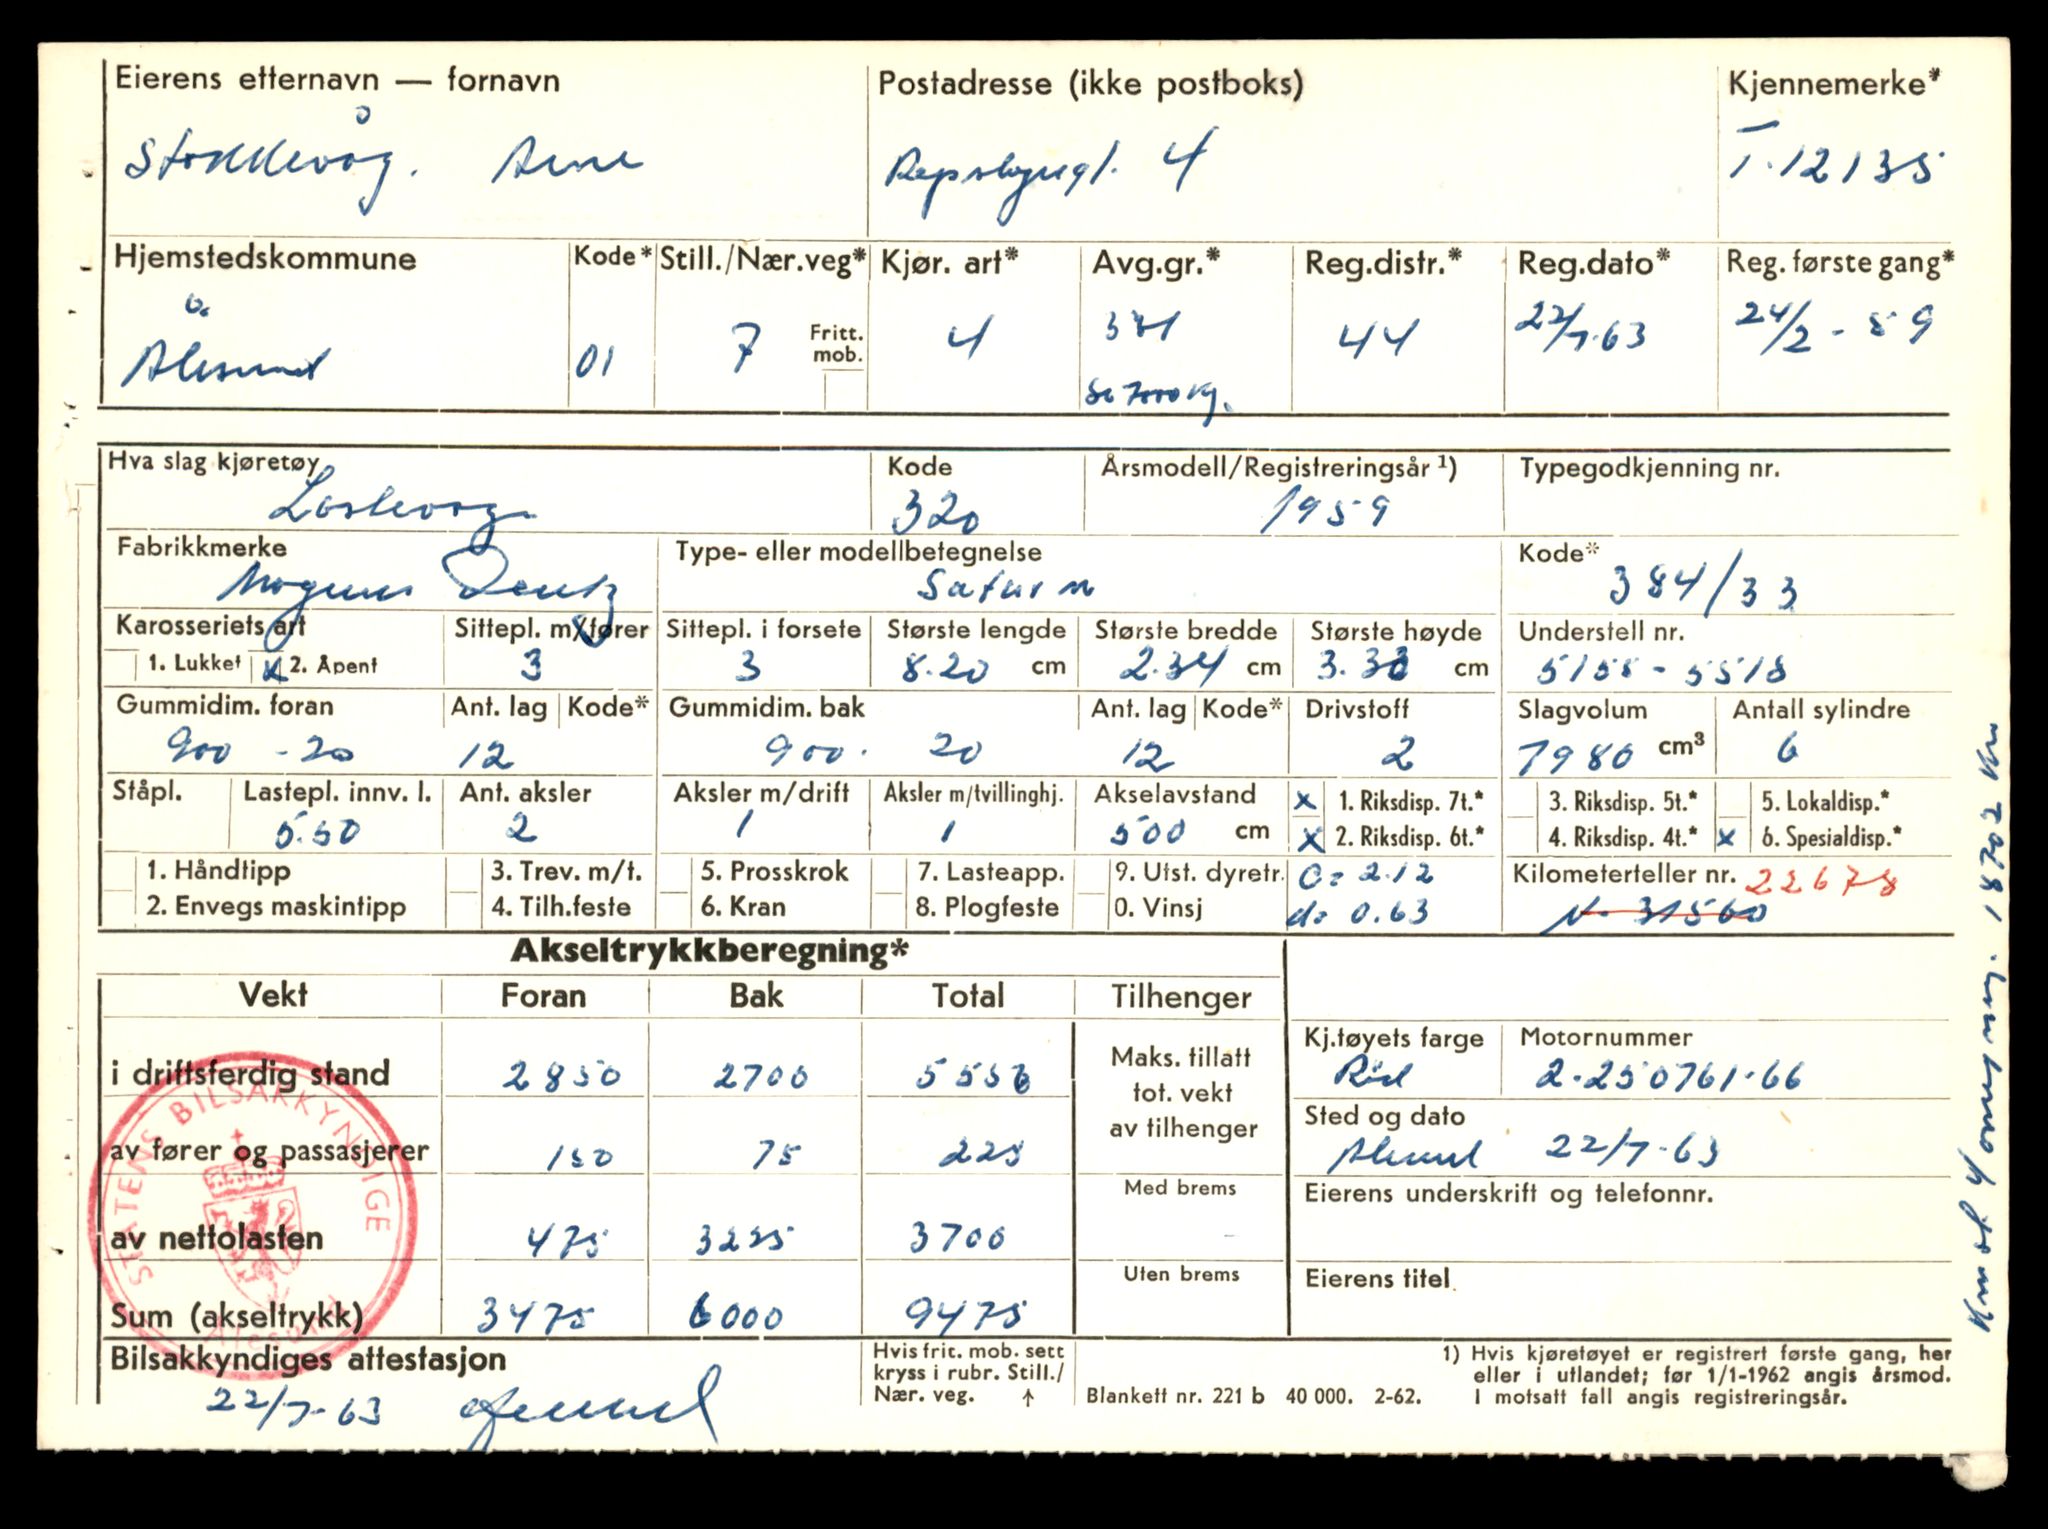 Eierens etternavn — fornavn Postadresse (ikke postboks) Kjennemerke*
Stokkevåg. Arne Repslagergt. 4 T-12135
Hjemstedskommune Kode* Still./Nær.veg* Kjør. art* Avg.gr.* Reg.distr.* Reg.dato* Reg. første gang*
Ålesund 01 7 Fritt. mob. 4 44 22/7-63 24/2-59
7000 kg.
Hva slag kjøretøy Kode Årsmodell/Registreringsår ¹) Typegodkjenning nr.
Lastevogn 320 1959
Fabrikkmerke Type- eller modellbetegnelse Kode*
Magirus Deutz Saturn 384/33
Karosseriets art Sittepl. m/fører Sittepl. i forsete Største lengde Største bredde Største høyde Understell nr.
1. Lukket x 2. Åpent 3 3 8.20 cm 2.34 cm cm 5155-5518
Gummidim. foran Ant. lag Kode* Gummidim. bak Ant. lag Kode* Drivstoff Slagvolum Antall sylindre
900-20 12 900-20 12 2 7980 cm³ 6
Ståpl. Lastepl. innv. l. Ant. aksler Aksler m/drift Aksler m/tvillinghj. Akselavstand x 1. Riksdisp. 7t.* 3. Riksdisp. 5t.* 5. Lokaldisp.*
5.50 2 1 1 500 cm x 2. Riksdisp. 6t.* 4. Riksdisp. 4t.* x 6. Spesialdisp.*
1. Håndtipp 3. Trev. m/t. 5. Prosskrok 7. Lasteapp. 9. Utst. dyretr. C= 2.12 Kilometerteller nr. 22678
2. Envegs maskintipp 4. Tilh.feste 6. Kran 8. Plogfeste 0. Vinsj d= 0.63 N- 31560
Akseltrykkberegning*
Vekt Foran Bak Total Tilhenger
i driftsferdig stand 2850 2700 5550 Maks. tillatt tot. vekt av tilhenger Kj.tøyets farge Motornummer
Rød 2-250761-66
av fører og passasjerer 150 75 225 Sted og dato
Ålesund 22/7-63
av nettolasten 475 3225 3700 Med brems Eierens underskrift og telefonnr.
Sum (akseltrykk) 3475 6000 9475 Uten brems Eierens titel
STATENS BILSAKKYNDIGE
Ålesund
Bilsakkyndiges attestasjon
22/7-63
Hvis frit. mob. sett
kryss i rubr. Still./
Nær. veg. ↑
Blankett nr. 221 b 40 000. 2-62.
1) Hvis kjøretøyet er registrert første gang, her
eller i utlandet; før 1/1-1962 angis årsmod.
I motsatt fall angis registreringsår.
18702 km